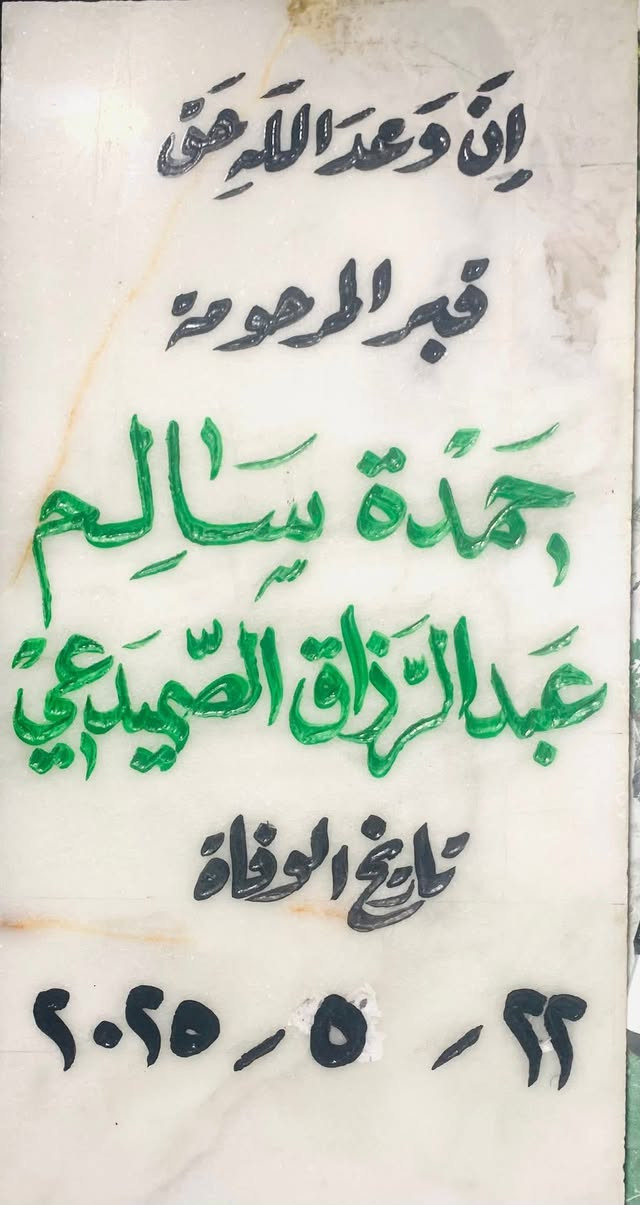 إنَ وَعدَ اللهِ حَق
قبر المرحومة
حَمْدة سَالِم
عَبدالرّزاق الصّميدَعيْ
تاريخ الوفاة
٢٢ / ٥ / ٢٠٢٥